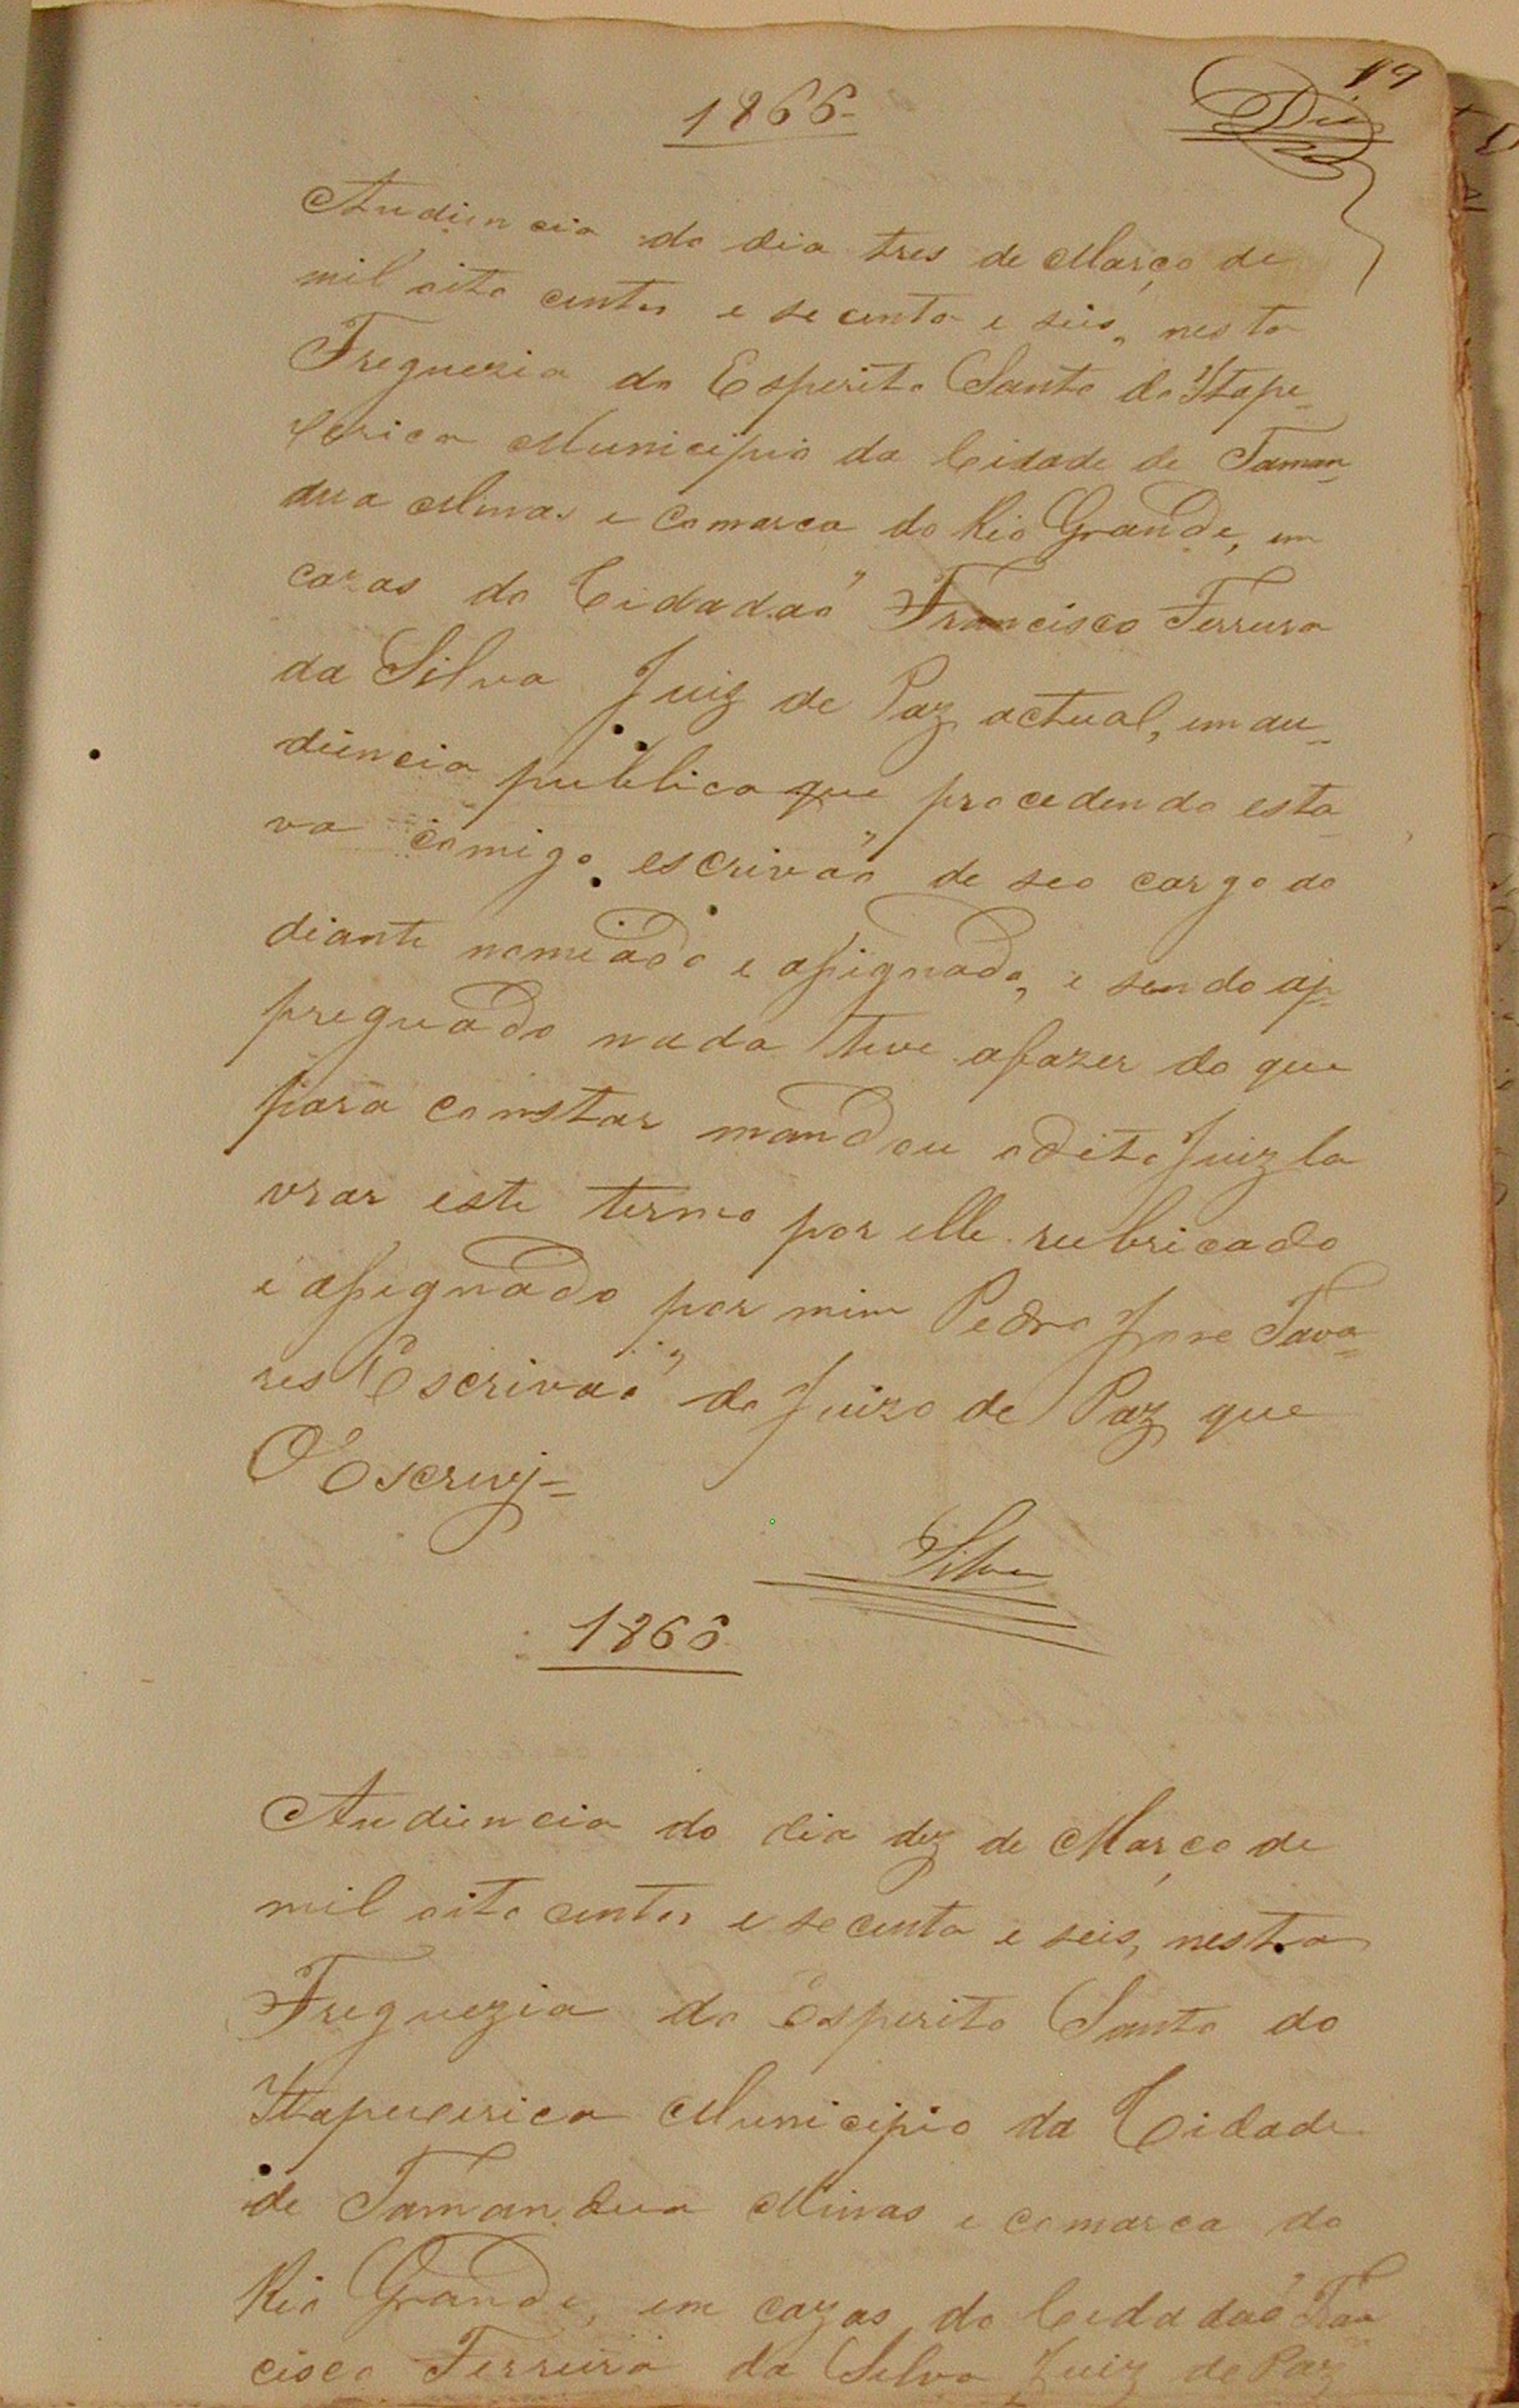 19
1866
Audiencia do dia tres de Março de
mil oito centos e secenta e seis, nesta
Freguezia do Esperito Santo do Itape-
cerica Municipio da Cidade de Taman-
dua Minas e Comarca do Rio Grande, em
cazas do Cidadaõ Francisco Ferreira
da Silva Juiz de Paz actual, em au-
diencia publica que procedendo esta-
va comigo escrivaõ de seo cargo ao
diante nomeado e assignado, e sendo ap-
preguado nada teve afazer do que
para constar mandou o dito Juiz la
vrar este termo por elle rubricado
e assignado por mim Pedro Jose Tava-
res Escrivaõ do Juizo de Paz que
O Escrevy=
Silva
1866
Audiencia do dia dez de Março de
mil oito centos e secenta e seis, nesta
Freguezia do Esperito Santo do
Itapecerica Municipio da Cidade
de Tamandua Minas e comarca do
Rio Grande, em cazas do Cidadaõ Fran
cisco Ferreira da Silva Juiz de Paz